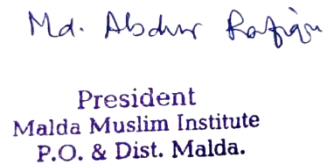 Md. Abdur Rafique
President
Malda Muslim Institute
P.O. & Dist. Malda.